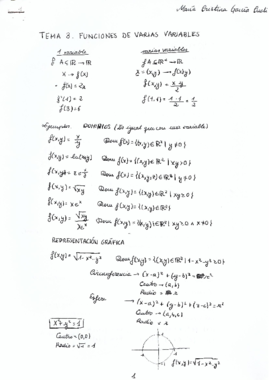 María Cristina García
TEMA 8. FUNCIONES DE VARIAS VARIABLES
1 variable
varias variables
f A⊆ℝ → ℝ
f A⊆ℝ² → ℝ
x → f(x)
x = (x,y) → f(x,y)
f(x) = 2x
f(x,y) = x·y/2
f(1) = 2
f(1,1) = 1·1/2 = 1/2
f(3) = 6
Ejemplos DOMINIOS (Es igual que con una variable)
f(x,y) = x/y Dom f(x) = {(x,y) ∈ ℝ² | y ≠ 0}
f(x,y) = ln(xy) Dom f(x) = {(x,y) ∈ ℝ² | xy > 0}
f(x,y) = √xy Dom f(x) = {(x,y) ∈ ℝ² | xy ≥ 0}
Dom f(x,y) = {(x,y) ∈ ℝ²}
f(x,y) = √xy Dom f(x,y) = {(x,y) ∈ ℝ² | xy ≥ 0 ∧ x ≠ 0}
REPRESENTACIÓN GRÁFICA
f(x,y) = √1-x²-y² Dom f(x,y) = {(x,y) ∈ ℝ² | 1-x²-y² ≥ 0}
Circunferencia → (x-a)² + (y-b)² = r²
Centro → (a,b)
Radio → r
Esfera → (x-a)² + (y-b)² + (z-c)² = r²
Centro →
Radio
x² + y² = 1
Centro = (0,0)
Radio = √1 = 1
f(x,y) = √1-x²-y²
1